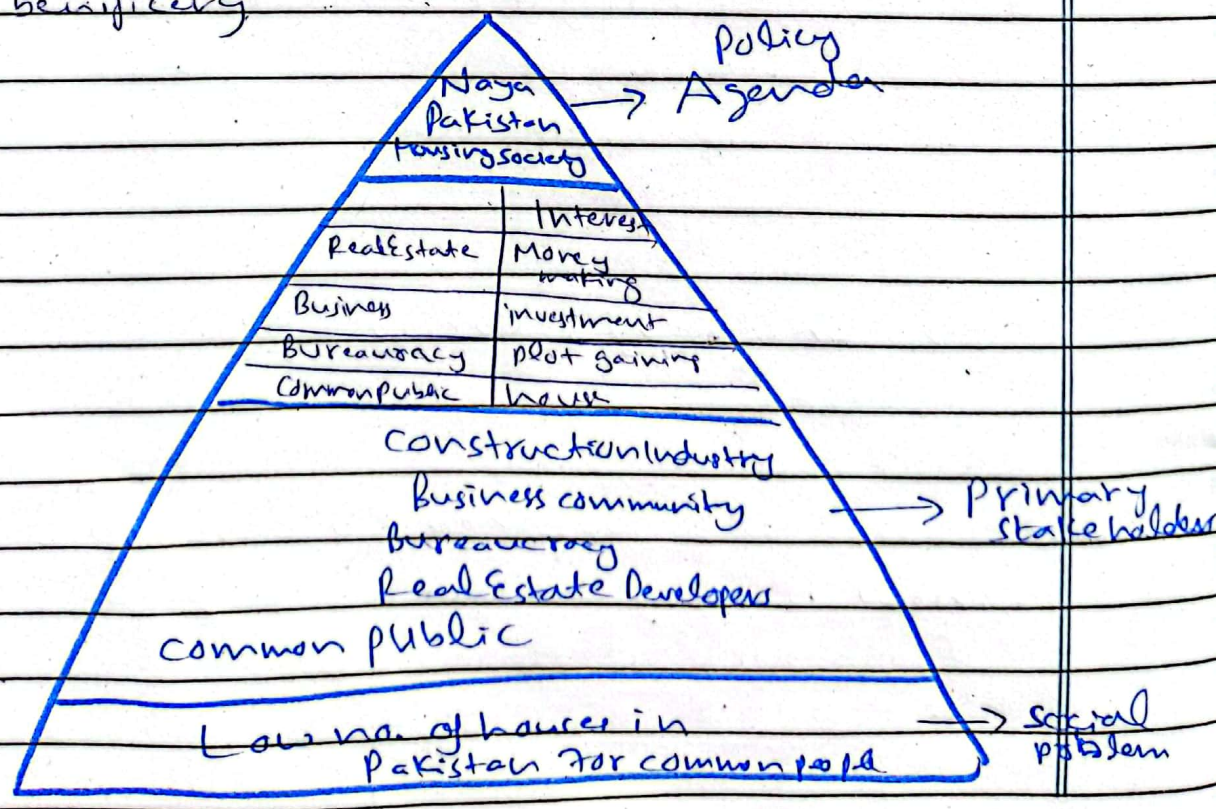 benificery
Policy
Naya → Agenda
Pakistan
Housing society
Interest
Real Estate Money making
Business investment
Bureaucracy plot gaining
Common Public house
Construction Industry
Business community
→ Primary stakeholders
Bureaucracy
Real Estate Developers
common public
Low no. of houses in → social
Pakistan for common people problem